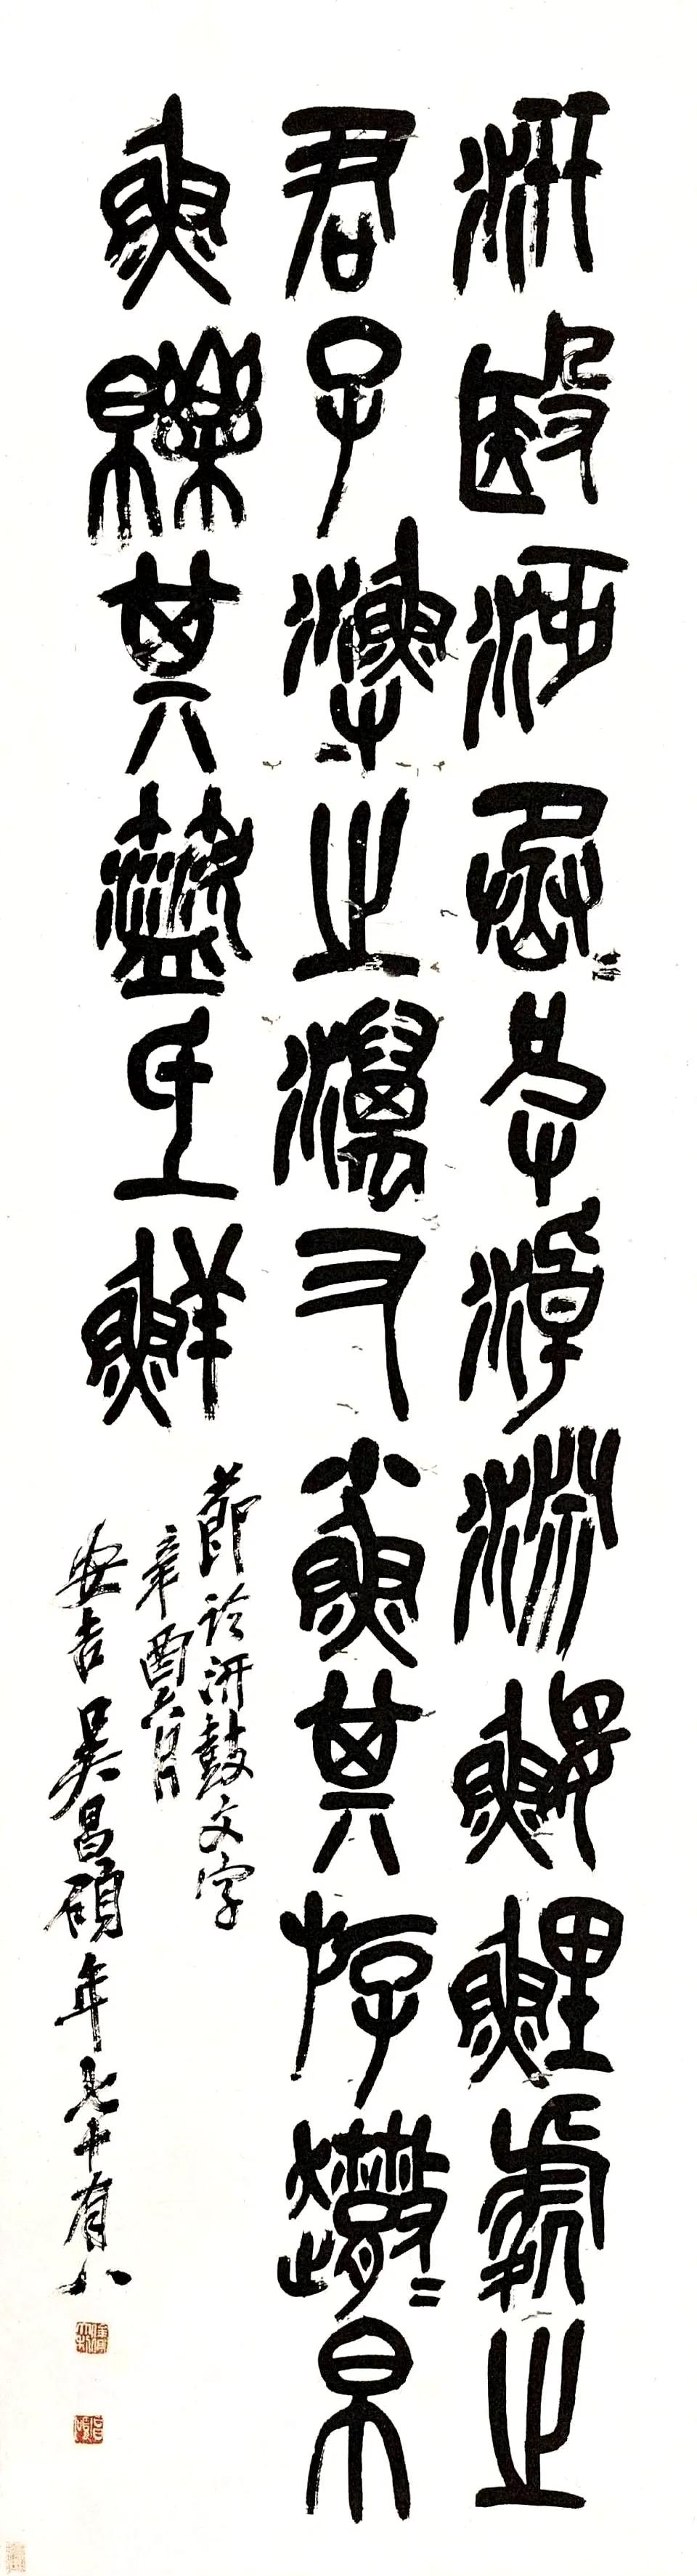 汧殹沔丞=皮淖淵鰋鯉處之
君子漁之澫又小魚其斿𧽯=帛
魚皪其盜氐鮮
節臨汧鼓文字
辛酉六月
安吉吳昌碩年七十有八